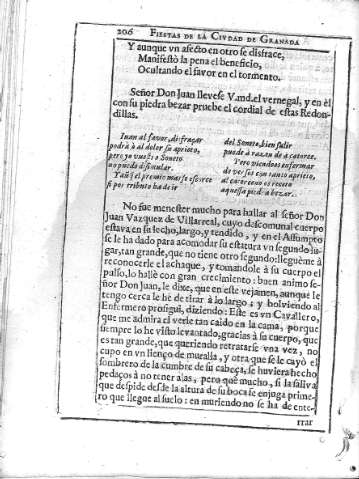 206 FIESTAS DE LA CIVDAD DE GRANADA
Y aunque vn afecto en otro se disfrace,
Manifestò la pena el beneficio,
Ocultando el favor en el tormento.
Señor Don Juan llevese V.md.el vernegal, y en èl
con su piedra bezar pruebe el cordial de estas Redon-
dillas.
Iuan al favor, disfraçar
podrà à al dolor su aprieto,
pero yo vuestro Soneto
no puedo disimular.
Y assi el premio mas se esfuerce
si por tributo ha de ir
del Soneto, bien salir
puede à razon de a catorce.
Pero viendoos enfermar
de versos con tanto aprieto,
al catorceno os receto
aquessa piedra bezar.
No fue menester mucho para hallar al señor Don
Juan Vazquez de Villarreal, cuyo descomunal cuerpo
estava en su lecho, largo, y tendido, y en el Assumpto
se le ha dado para acomodar su estatura vn segundo lu-
gar, tan grande, que no tiene otro segundo: lleguème à
reconocerle el achaque, y tomandole à su cuerpo el
pulso, lo hallè con gran crecimiento: buen animo se-
ñor Don Juan, le dixe, que en este vejamen, aunque le
tengo cerca le hè de tirar à lo largo; y bolviendo al
Enfermero prosigui, diziendo: Este es vn Cavallero,
que me admira el verle tan caìdo en la cama, porque
siempre lo he visto levantado, gracias à su cuerpo, que
es tan grande, que queriendo retratarse vna vez, no
cupo en vn lienço de muralla, y otra que se le cayò el
sombrero de la cumbre de su cabeça, se huviera hecho
pedaços à no tener alas, pero què mucho, si la saliva
que despide desde la altura de su boca se enjuga prime-
ro que llegue al suelo: en muriendo no se ha de ente-
rrar